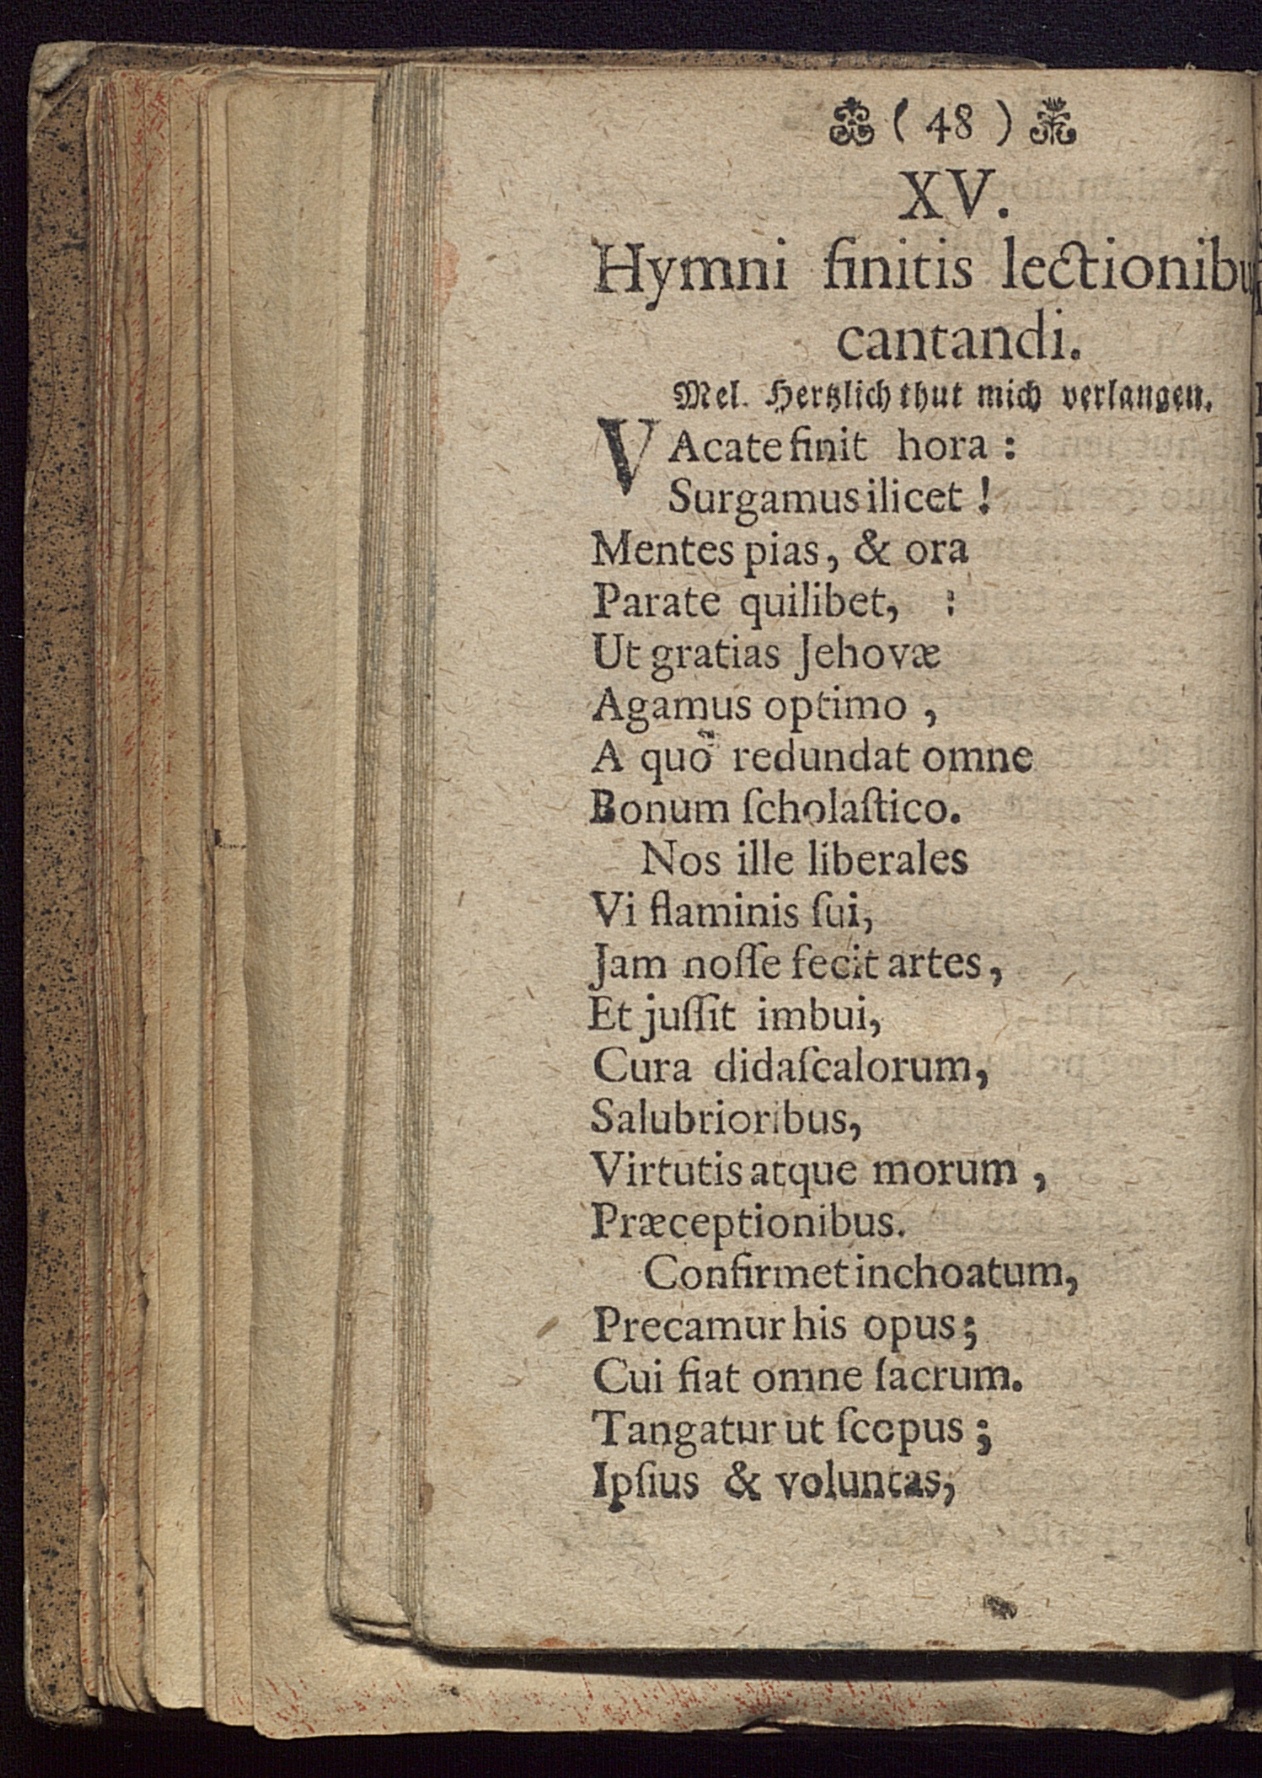 ( 48 )
XV.
Hymni finitis lectionibu
cantandi.
Mel. Hertzlich thut mich verlangen.
VAcate finit hora :
Surgamus ilicet !
Mentes pias, & ora
Parate quilibet, :
Ut gratias Jehovæ
Agamus optimo ,
A quô redundat omne
Bonum ſcholaſtico.
Nos ille liberales
Vi flaminis ſui,
Jam noſſe fecit artes,
Et juſſit imbui,
Cura didaſcalorum,
Salubrioribus,
Virtutis atque morum ,
Præceptionibus.
Confirmet inchoatum,
Precamur his opus;
Cui fiat omne ſacrum.
Tangatur ut ſcopus ;
Ipſius & voluntas,